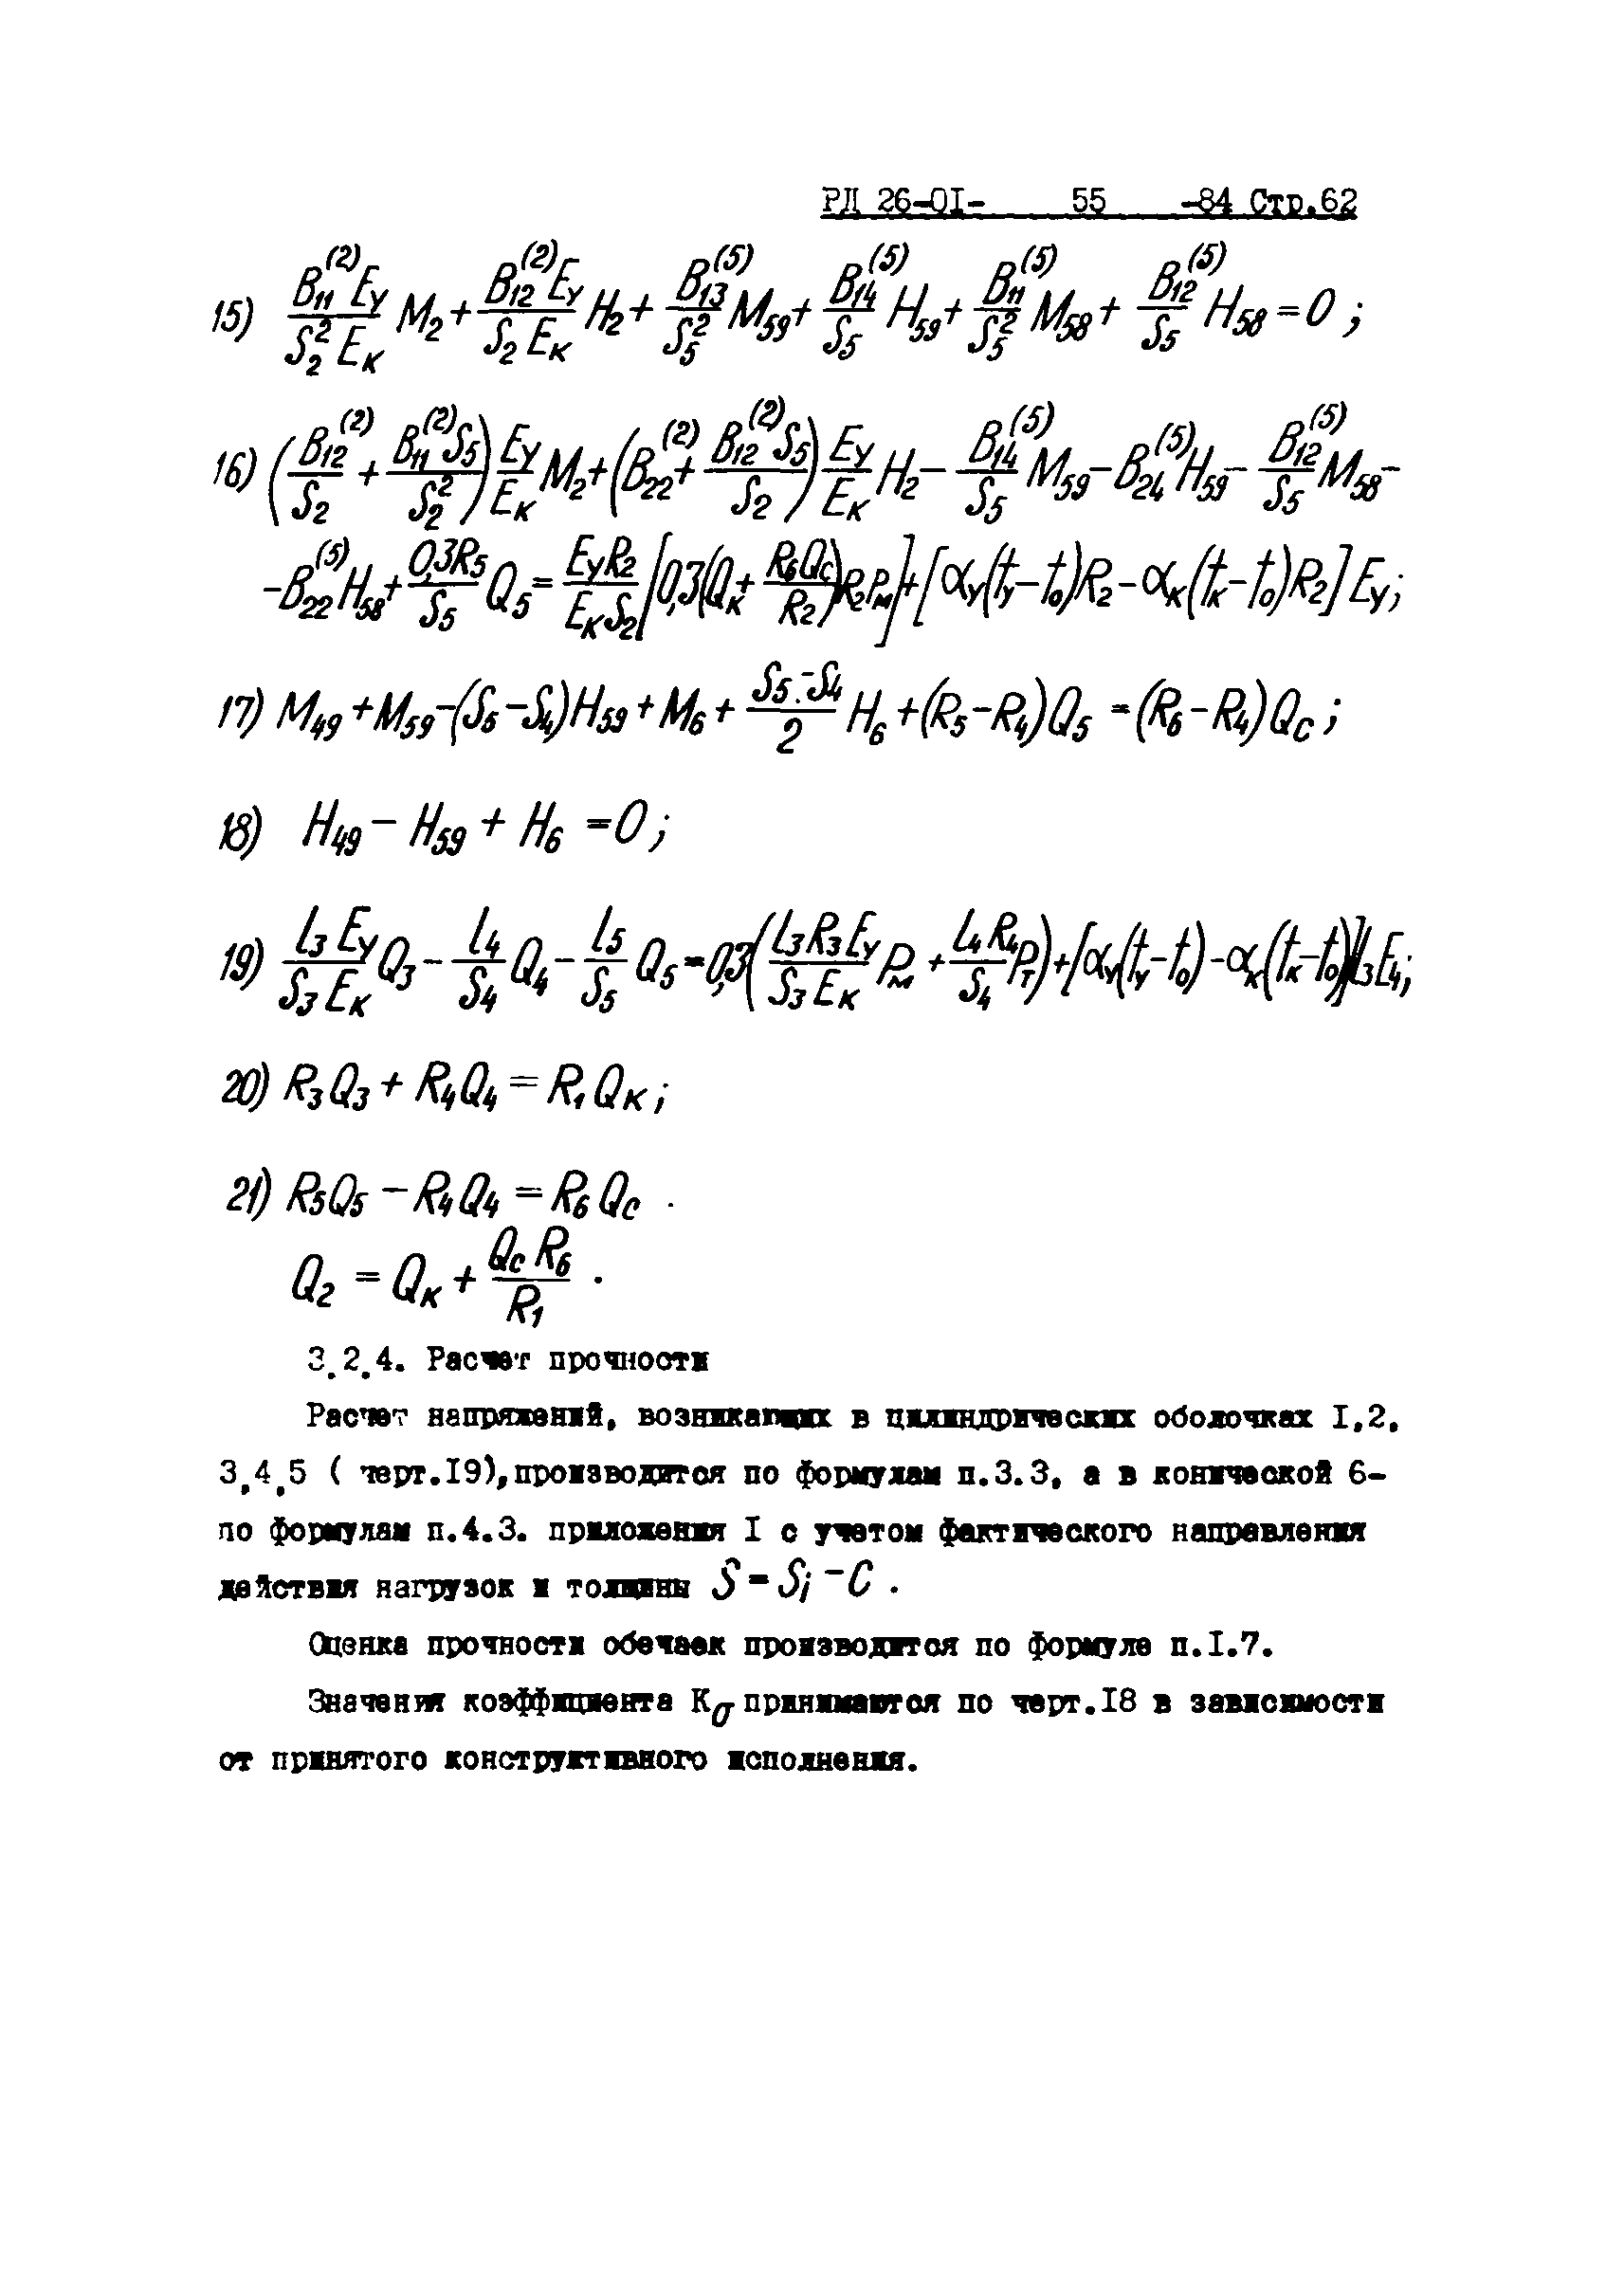 РД 26-01- 55 -84 Стр.62
15) \frac{B_{11}^{(2)} E_у}{S_2^2 E_к} M_2 + \frac{B_{12}^{(2)} E_у}{S_2 E_к} H_2 + \frac{B_{13}^{(5)}}{S_5^2} M_{59} + \frac{B_{14}^{(5)}}{S_5} H_{59} + \frac{B_{11}^{(5)}}{S_5^2} M_{58} + \frac{B_{12}^{(5)}}{S_5} H_{58} = 0 ;
16) (\frac{B_{12}^{(2)}}{S_2} + \frac{B_{11}^{(2)} S_5}{S_2^2}) \frac{E_у}{E_к} M_2 + (B_{22}^{(2)} + \frac{B_{12}^{(2)} S_5}{S_2}) \frac{E_у}{E_к} H_2 - \frac{B_{14}^{(5)}}{S_5} M_{59} - B_{24}^{(5)} H_{59} - \frac{B_{12}^{(5)}}{S_5} M_{58} -
- B_{22}^{(5)} H_{58} + \frac{0,3R_5}{S_5} Q_5 = \frac{E_у R_2}{E_к S_2} [0,3(Q_к + \frac{R_6 Q_c}{R_2}) R_2 P_м] + [α_у(t_у - t_0)R_2 - α_к(t_к - t_0)R_2] E_у ;
17) M_{49} + M_{59} - (S_5 - S_4) H_{59} + M_6 + \frac{S_5 - S_4}{2} H_6 + (R_5 - R_4) Q_5 = (R_6 - R_4) Q_c ;
18) H_{49} - H_{59} + H_6 = 0 ;
19) \frac{l_3 E_у}{S_3 E_к} Q_3 - \frac{l_4}{S_4} Q_4 - \frac{l_5}{S_5} Q_5 = 0,3 (\frac{l_3 R_3 E_у}{S_3 E_к} P_м + \frac{l_4 R_4}{S_4} P_т) + [α_у(t_у - t_0) - α_к(t_к - t_0)] l_3 E_4 ;
20) R_3 Q_3 + R_4 Q_4 = R_1 Q_к ;
21) R_5 Q_5 - R_4 Q_4 = R_6 Q_c .
Q_2 = Q_к + \frac{Q_c R_6}{R_1} .
3.2.4. Расчет прочности
Расчет напряжений, возникающих в цилиндрических оболочках I,2,
3,4,5 ( черт.I9),производится по формулам п.3.3, а в конической 6-
по формулам п.4.3. приложения I с учетом фактического направления
действия нагрузок и толщины S = S_i - C .
Оценка прочности обечаек производится по формуле п.I.7.
Значения коэффициента K_σ принимаются по черт.I8 в зависимости
от принятого конструктивного исполнения.